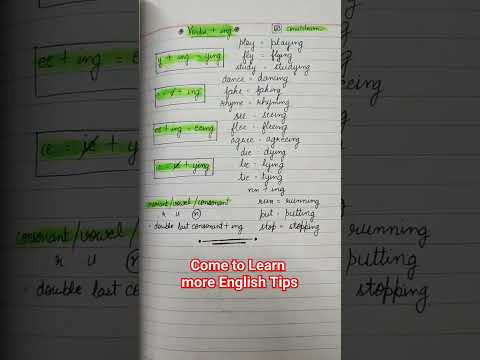 Verbs + ing
play = playing
y + ing = ying
fly = flying
study = studying
dance = dancing
e = e + ing
fake = faking
rhyme = rhyming
see = seeing
ee + ing = eeing
flee = fleeing
agree = agreeing
die = dying
ie = ie + ying
lie = lying
tie = tying
run + ing
consonant/vowel/consonant
run = running
r u n
put = putting
- double last consonant + ing
stop = stopping
Come to Learn
more English Tips